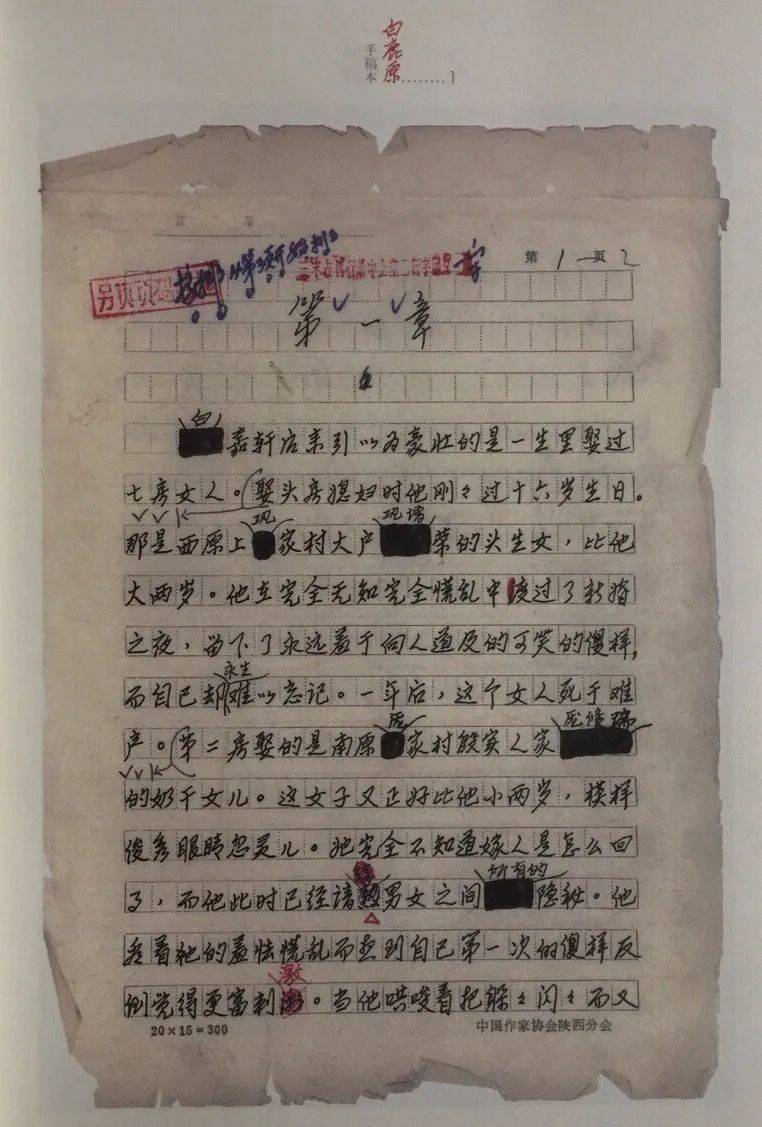 白鹿原
手稿本........1
第1页 2
第一章
白嘉轩后来引以为豪壮的是一生里娶过
七房女人。娶头房媳妇时他刚々过十六岁生日。
巩 巩增
那是西原上家村大户荣的头生女,比他
大两岁。他在完全无知完全慌乱中度过了新婚
之夜,留下了永远羞于向人道及的可笑的傻样,
永生
而自己却难以忘记。一年后,这个女人死于难
庞 庞修瑞
产。第二房娶的是南原家村殷实人家
的奶干女儿。这女子又正好比他小两岁,模样
俊秀眼睛忽灵儿。她完全不知道嫁人是怎么回
所有的
了,而他此时已经谙熟男女之间隐秘。他
看着她的羞怯慌乱而想到自己第一次的傻样反
激
倒觉得更富刺。当他哄唆着把躲々闪々而又
20×15=300
中国作家协会陕西分会